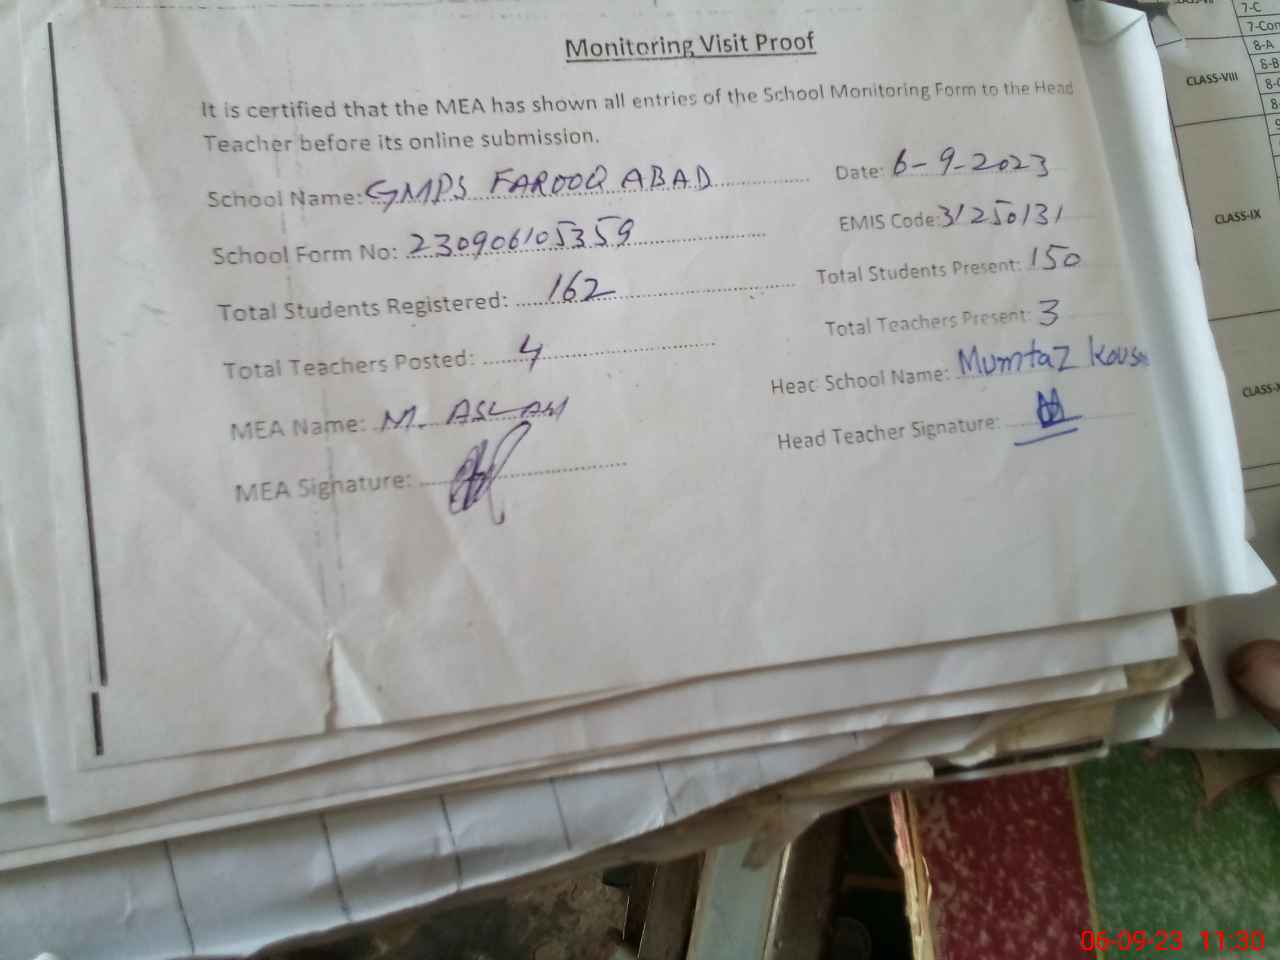 Monitoring Visit Proof
It is certified that the MEA has shown all entries of the School Monitoring Form to the Head
Teacher before its online submission.
School Name: GMPS FAROOQ ABAD Date: 6-9-2023
School Form No: 230906105359 EMIS Code: 31250131
Total Students Registered: 162 Total Students Present: 150
Total Teachers Posted: 4 Total Teachers Present: 3
MEA Name: M. ASLAM Heac School Name: Mumtaz
MEA Signature: Head Teacher Signature:
7-C
8-A
CLASS-VIII
8-B
CLASS-IX
06-09-23 11:30